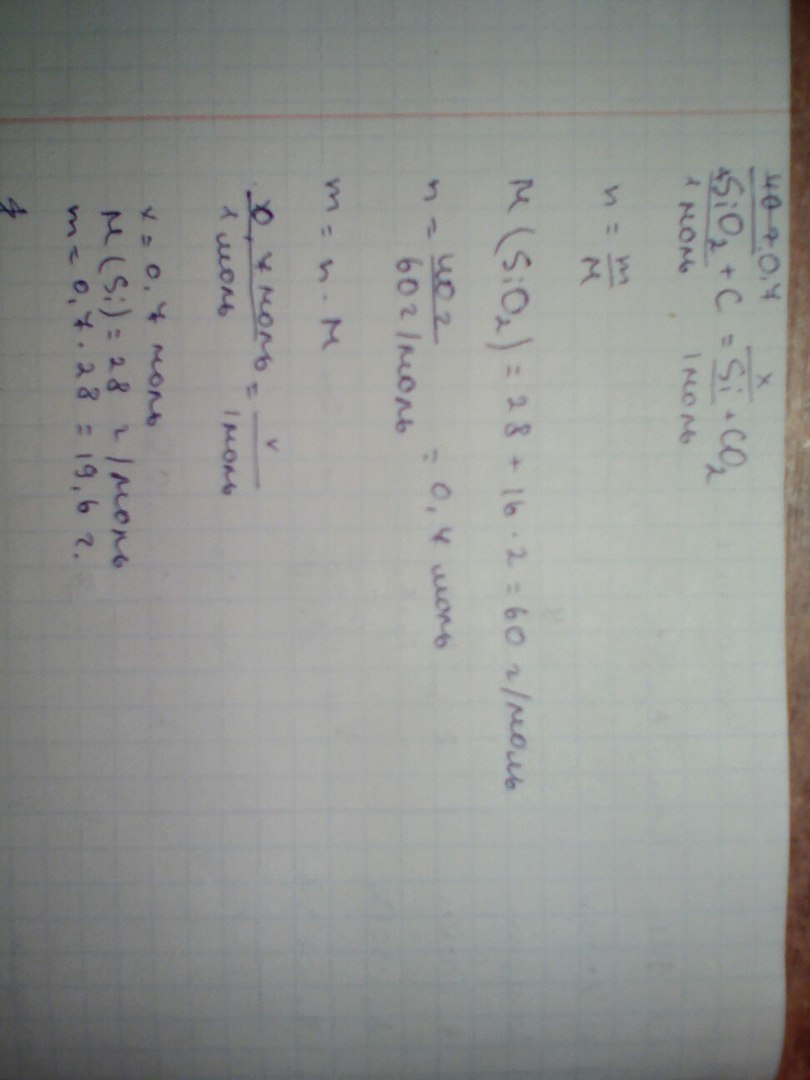 40 г 0,7 x
SiO₂ + C = Si + CO₂
1 моль 1 моль
n = m/M
M (SiO₂) = 28 + 16 · 2 = 60 г/моль
n = 40 г / 60 г/моль = 0,7 моль
m = n · M
0,7 моль / 1 моль = x / 1 моль
x = 0,7 моль
M (Si) = 28 г/моль
m = 0,7 · 28 = 19,6 г.